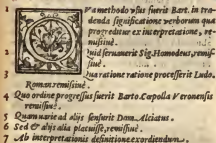 1 Va methodo vſus fuerit Bart. in tra-
denda ſignificatione verborum qua
progreditur ex interpretatione, re-
miſsiuè.
2 Quid ſenuerit Sig. Homodeus, remiſ-
ſiuè.
3 Qua ratione ratione proceſſerit Ludo.
Roman. remiſsiuè.
4 Quo ordine progreſſus fuerit Barto. Cæpolla Veronenſis
remiſsiuè.
5 Quam variè ad aliis ſenſerit Dom. Alciatus.
6 Sed & aliis alia placuiſſe, remiſsiuè.
7 Ab interpretationis definitione exordiendum.